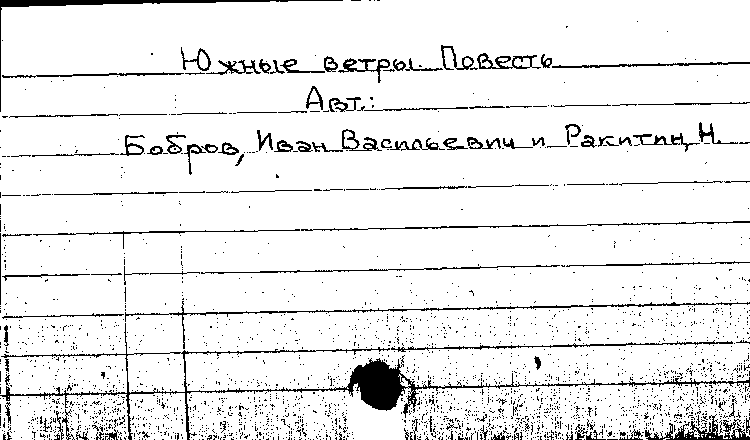 Южные ветры. Повесть
Авт.:
Бобров, Иван Васильевич и Ракитин, Н.